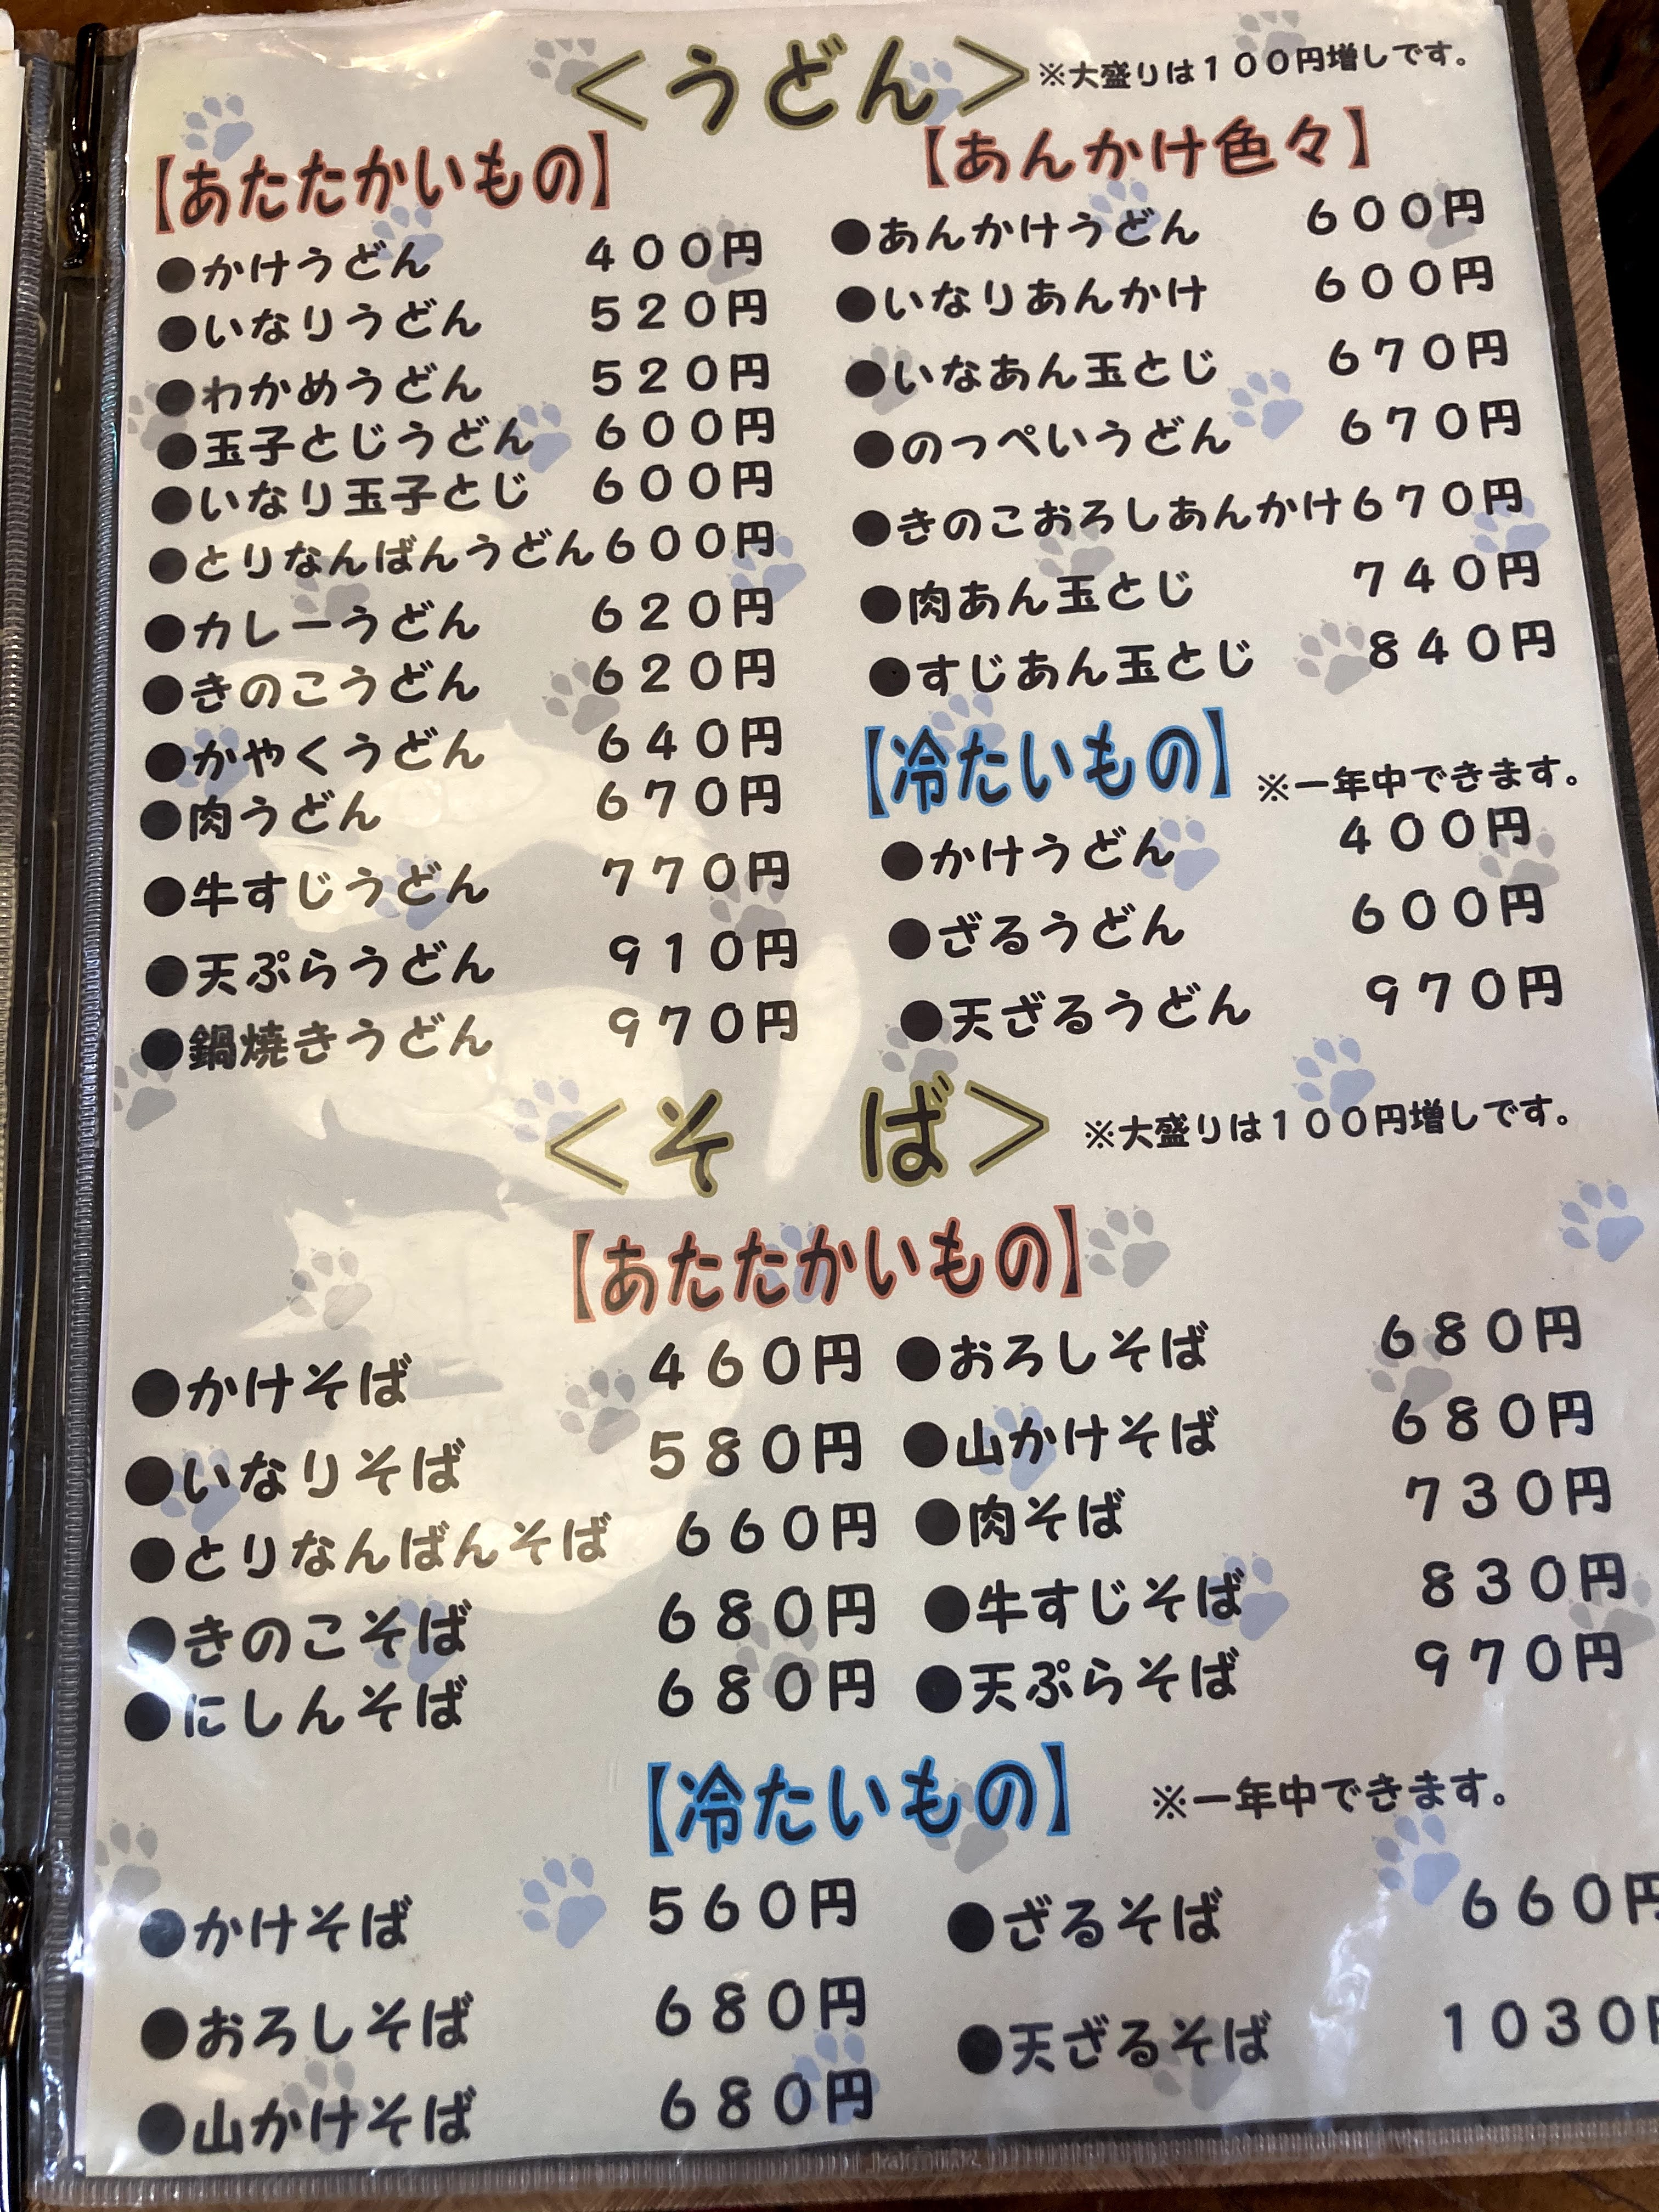 ＜うどん＞ ※大盛りは１００円増しです。
【あたたかいもの】
●かけうどん ４００円
●いなりうどん ５２０円
●わかめうどん ５２０円
●玉子とじうどん ６００円
●いなり玉子とじ ６００円
●とりなんばんうどん６００円
●カレーうどん ６２０円
●きのこうどん ６２０円
●かやくうどん ６４０円
●肉うどん ６７０円
●牛すじうどん ７７０円
●天ぷらうどん ９１０円
●鍋焼きうどん ９７０円
【あんかけ色々】
●あんかけうどん ６００円
●いなりあんかけ ６００円
●いなあん玉とじ ６７０円
●のっぺいうどん ６７０円
●きのこおろしあんかけ６７０円
●肉あん玉とじ ７４０円
●すじあん玉とじ ８４０円
【冷たいもの】 ※一年中できます。
●かけうどん ４００円
●ざるうどん ６００円
●天ざるうどん ９７０円
＜そ　ば＞ ※大盛りは１００円増しです。
【あたたかいもの】
●かけそば ４６０円
●いなりそば ５８０円
●とりなんばんそば ６６０円
●きのこそば ６８０円
●にしんそば ６８０円
●おろしそば ６８０円
●山かけそば ６８０円
●肉そば ７３０円
●牛すじそば ８３０円
●天ぷらそば ９７０円
【冷たいもの】 ※一年中できます。
●かけそば ５６０円
●おろしそば ６８０円
●山かけそば ６８０円
●ざるそば ６６０円
●天ざるそば １０３０円